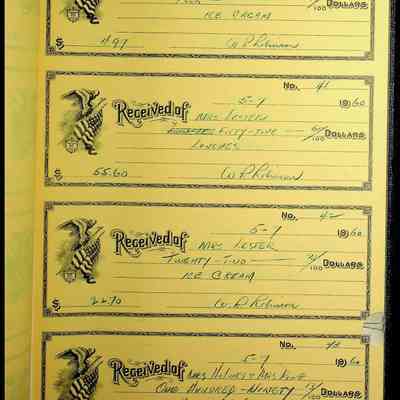 100 DOLLARS
ICE CREAM
$ 4.97 W. P. Robinson
No. 41
5-7 1960
Received of Mrs Lester
Fifty-Two 60/100 DOLLARS
Lunches
$ 55.60 W. P. Robinson
No. 42
5-7 1960
Received of Mrs Lester
Twenty-Two /100 DOLLARS
ICE CREAM
$ 22.70 W. P. Robinson
No. 43
5-7 1960
Received of Mrs Holmes +
One Hundred-Ninety DOLLARS